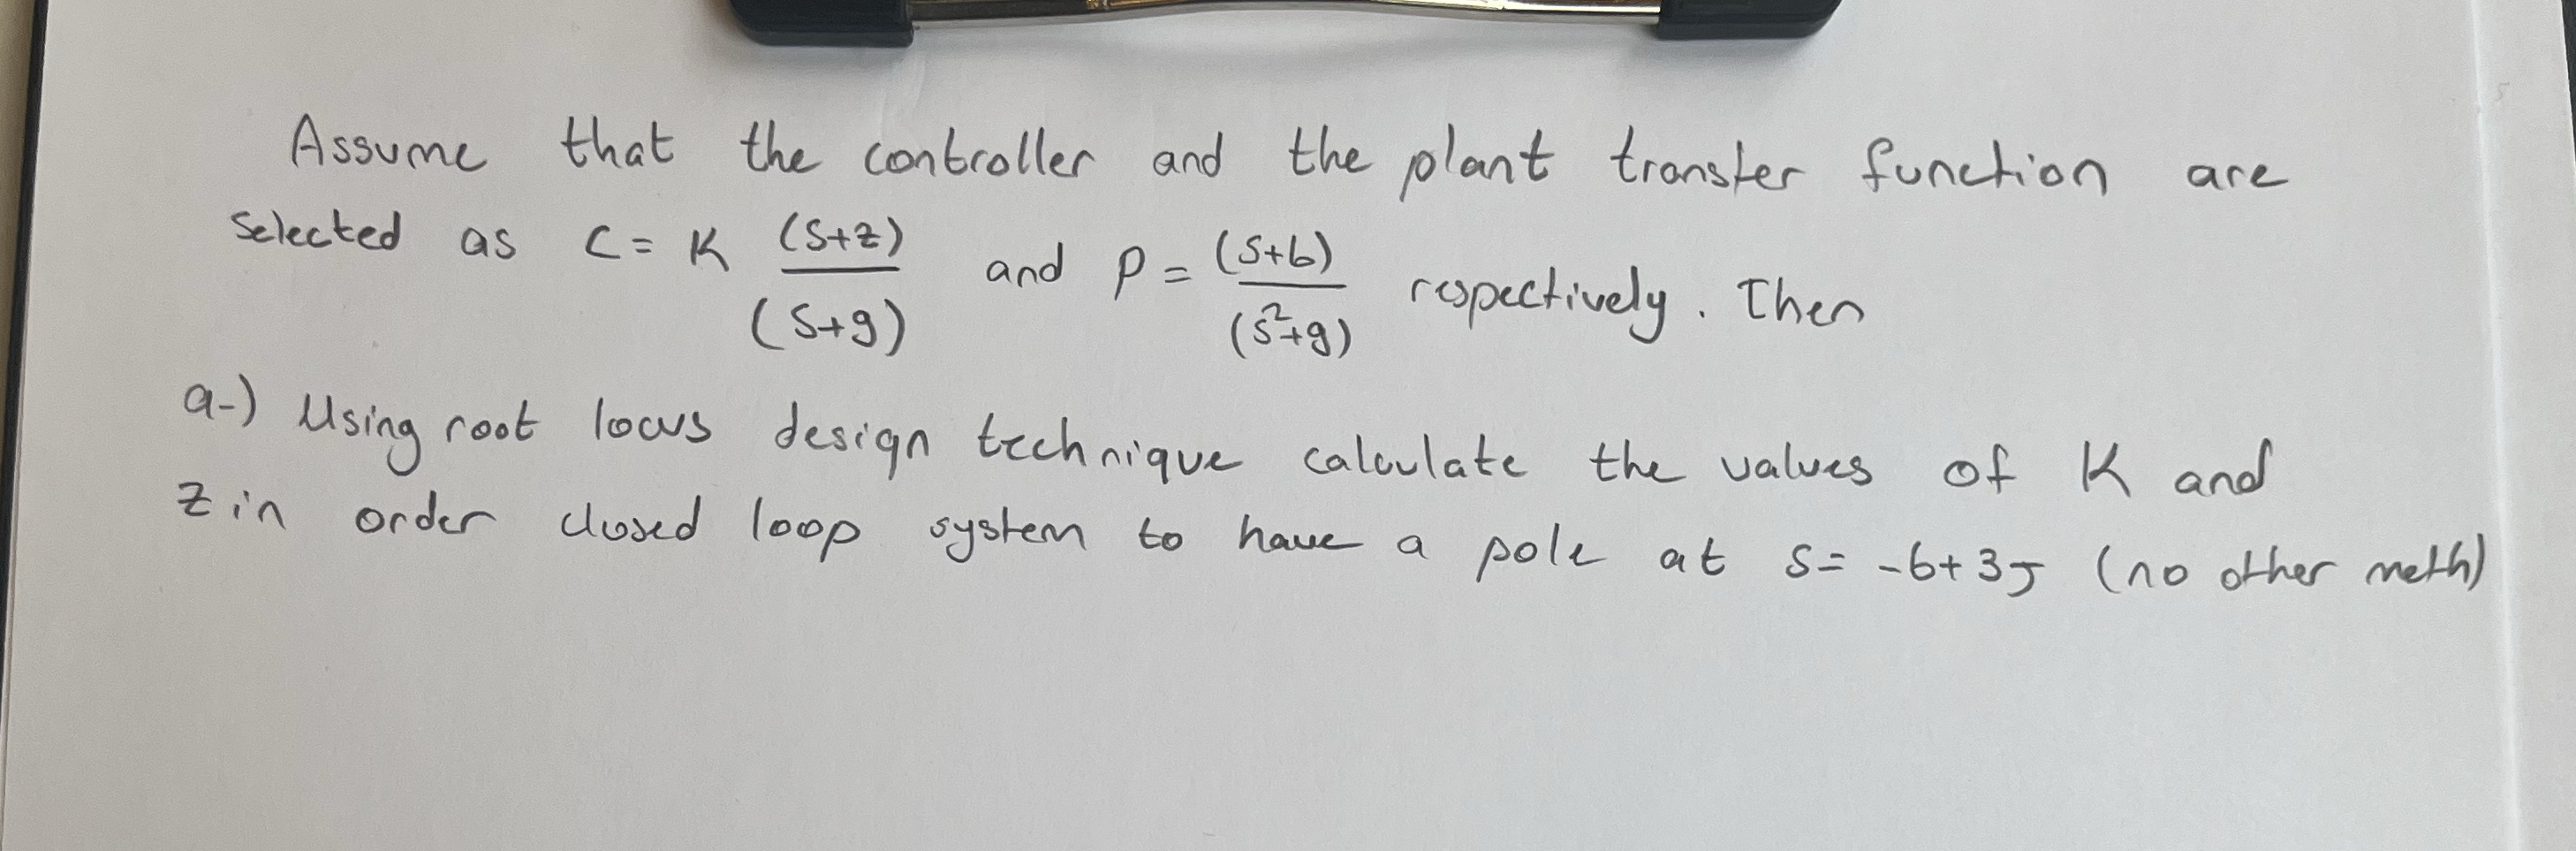 Assume that the controller and the plant transfer function are
selected as C = K (s+z)/(s+9) and P = (s+6)/(s²+9) respectively. Then
a-) Using root locus design technique calculate the values of K and
z in order closed loop system to have a pole at s = -6+3j (no other meth)